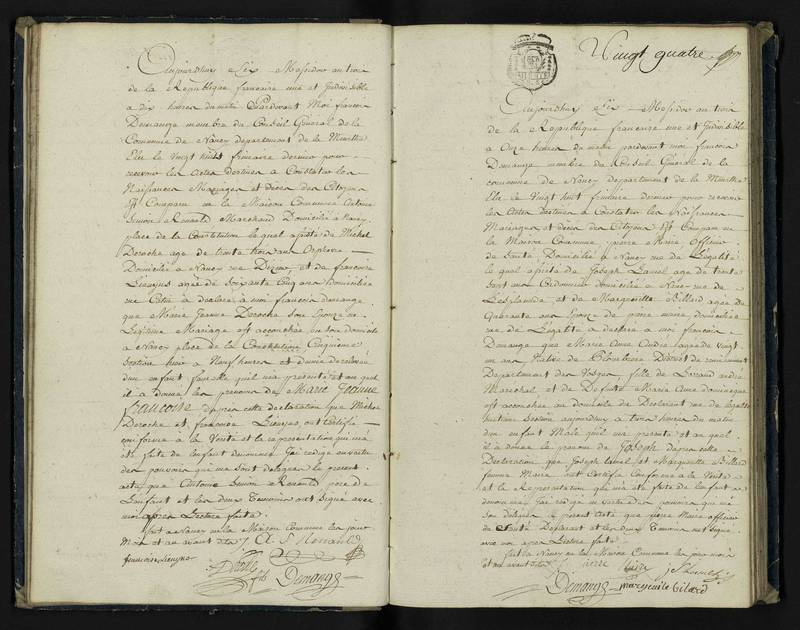 Aujourdhuy Messidor an trois
de la Republique francaise une et Indivisible
à dix heures du matin Pardevant Moi francois
Demange membre du Conseil Général de la
Commune de Nancy departement de la Meurthe
Elu le Vingt huit frimaire dernier pour
recevoir les actes destinés a Constater les
Naissances Mariages et décès des Citoyens
Est Comparu en la Maison Commune Antoine
Simon Renauld Marchand Domicilié à Nancy
place de la Constitution lequel assisté de Michel
Deroche age de trente trois ans
Domicilié à Nancy rue et de francoise
Lieujas agée de Soixante Cinq ans domiciliée
rue a declaré a moi francois demange
que Marie Jeanne Deroche son Epouse en
Légitime Mariage est accouchée en son domicile
a Nancy place de la Constitution Cinquième
Section hier a Neuf heures et demie
dun enfant femelle quil m'a presenté et au quel
il a donné les prenoms de Marie Jeanne
francoise dapres cette declaration que Michel
Deroche et francoise Lieujas ont certifié
conforme a la Verité et la representation qui m'a
été faite de l'enfant denommé j'ai redigé en vertu
des pouvoirs qui me sont delegués le present
acte que Antoine Simon Renauld pere de
l'enfant et les deux Temoins ont signé avec
moi apres Lecture faite
fait a Nancy en la Maison Commune les jour
Mois et an avant dits A. S. Renauld
francoise Lieujas
Demange
Vingt quatre
Aujourdhuy Messidor an trois
de la Republique francaise une et Indivisible
à Onze heures du matin pardevant moi francois
Demange membre du Conseil Général de la
commune de Nancy Departement de la Meurthe
Elu le Vingt huit frimaire dernier pour recevoir
les actes Destinés a Constater les Naissances
Mariages et décès des Citoyens Est Comparu en
la Maison Commune pierre Marie Officier
de Santé Domicilié a Nancy rue de l'Egalité
lequel assisté de Joseph age de trente
Sept ans Cordonnier domicilié a Nancy rue de
Lesplanade et de Marguerite Billard agée de
Quarante ans Epouse de pierre marie domiciliée
rue de L'Egalité a declaré a moi francois
Demange que Marie Anne André agée de Vingt
un ans Native de District de remiremont
Departement des Vosges fille de andré
Marechal et De Defunte Marie Anne
est accouchée au domicile du Declarant rue de legalité
huitieme Section aujourdhuy a trois heures du matin
dun enfant Male quil m'a presenté et au quel
il a donné le prenom de Joseph dapres cette
Declaration que Joseph et Marguerite Billard
femme Marie ont Certifié Conforme a la Verité
et la Representation qui m'a été faite de l'enfant
denommé j'ai redigé en vertu des pouvoirs qui me
sont delegués le present acte que pierre Marie officier
de Santé Declarant et les deux Temoins ont signé
avec moi apres Lecture faite
fait a Nancy en la Maison Commune les jour mois
et an avant dits pierre Marie
Demange margueritte bilard